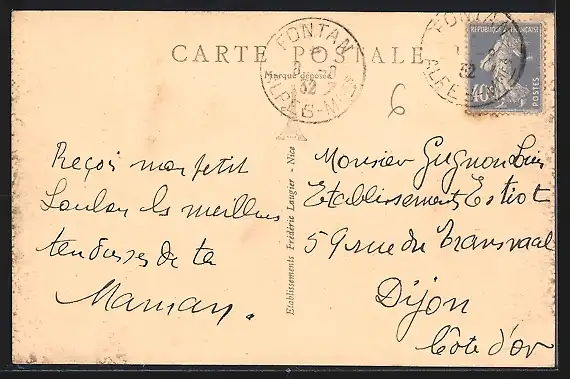 CARTE POSTALE
Marque déposée
FONTAN
32
ALPES-MMES
FONTAN
32
REPUBLIQUE FRANÇAISE
40c
POSTES
6
Reçois mon petit
Loulou les meilleures
tendresses de ta
Maman.
Etablissements Frédéric Laugier - Nice
Monsieur Gugnon Louis
Etablissements Estiot
59 rue du Transvaal
Dijon
Côte d'or